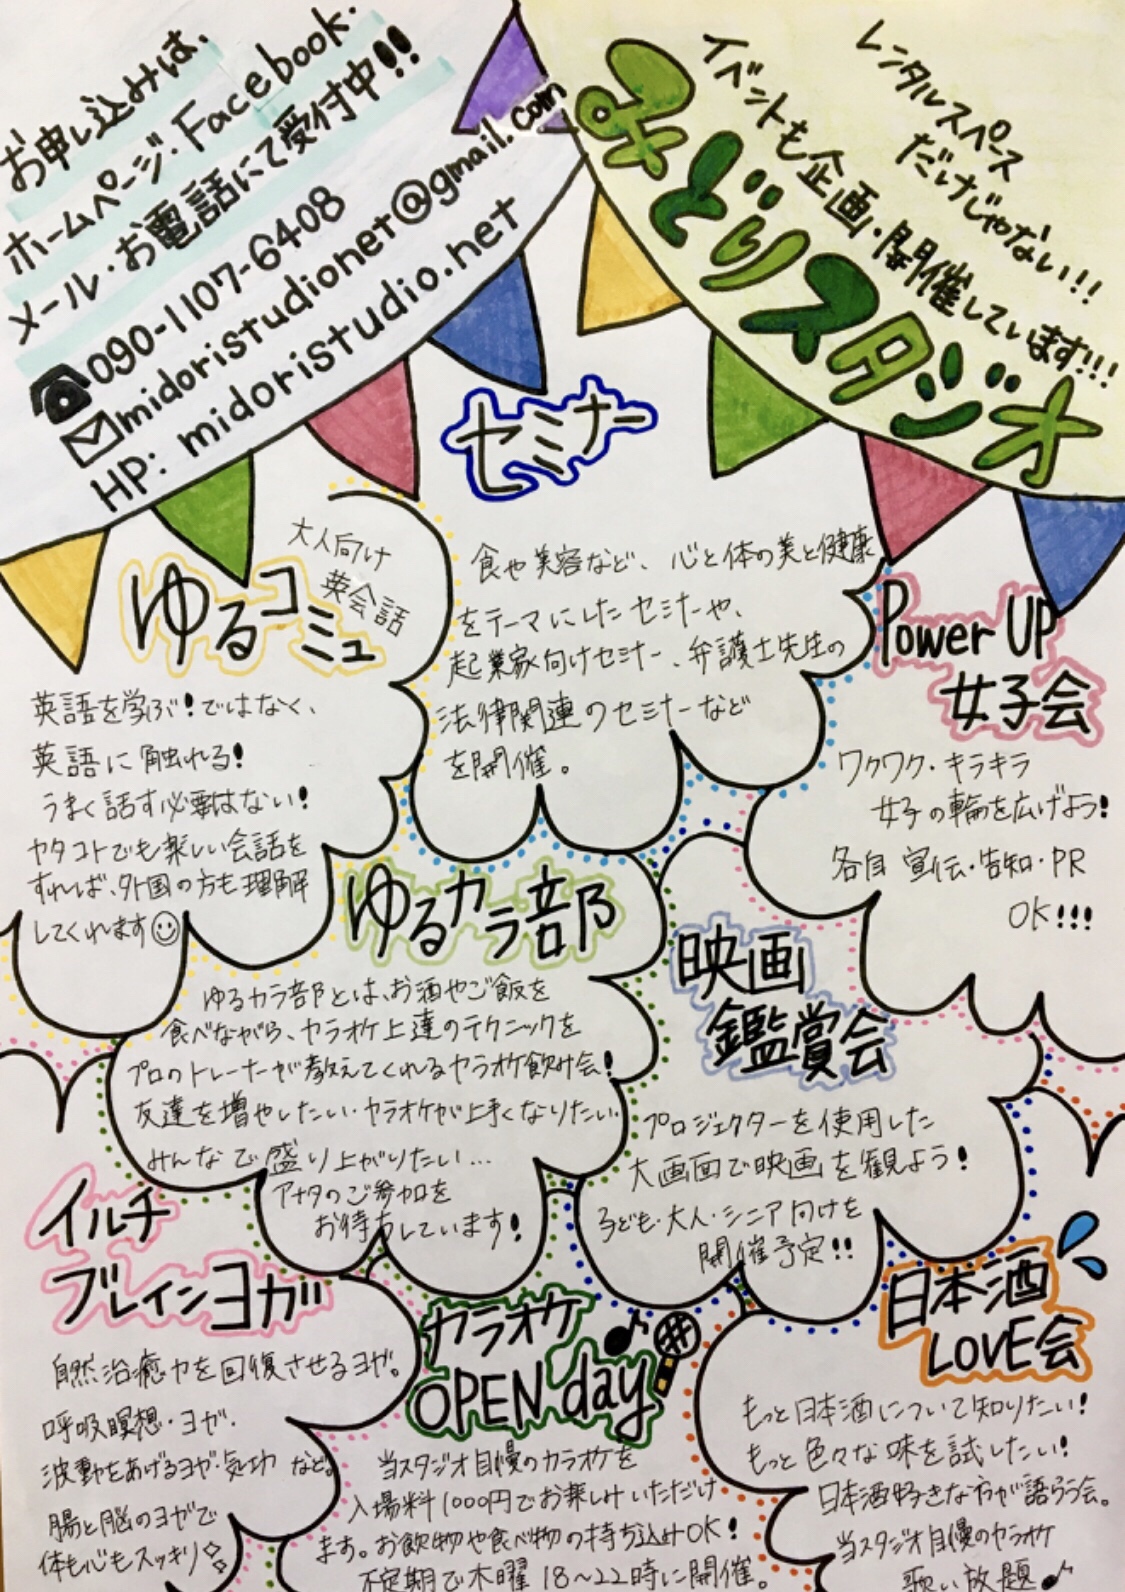 お申し込みは、
ホームページ・Facebook・
メール・お電話にて受付中!!
☎090-1107-6408
✉midoristudionet@gmail.com
HP: midoristudio.net
レンタルスペース
だけじゃない!!
イベントも企画・開催しています!!!
みどりスタジオ
セミナー
食や美容など、心と体の美と健康
をテーマにしたセミナーや、
起業家向けセミナー、弁護士先生の
法律関連のセミナーなど
を開催。
大人向け
英会話
ゆるコミュ
英語を学ぶ!ではなく、
英語に触れる!
うまく話す必要はない!
カタコトでも楽しい会話を
すれば、外国の方も理解
してくれます☺
Power UP
女子会
ワクワク・キラキラ
女子の輪を広げよう!
各自 宣伝・告知・PR
OK!!!
ゆるカラ部
ゆるカラ部とは、お酒やご飯を
食べながら、カラオケ上達のテクニックを
プロのトレーナーが教えてくれるカラオケ飲み会!
友達を増やしたい・カラオケが上手くなりたい・
みんなで盛り上がりたい…
アナタのご参加を
お待ちしています!
映画
鑑賞会
プロジェクターを使用した
大画面で映画を観よう!
子ども・大人・シニア向けを
開催予定!!
イルチ
ブレインヨガ
自然治癒力を回復させるヨガ。
呼吸瞑想・ヨガ・
波動をあげるヨガ・気功 など。
腸と脳のヨガで
体も心もスッキリ
カラオケ♪
OPEN day
当スタジオ自慢のカラオケを
入場料1000円でお楽しみいただけ
ます。お飲物や食べ物の持ち込みOK!
不定期で木曜18〜22時に開催。
日本酒
LOVE会
もっと日本酒について知りたい!
もっと色々な味を試したい!
日本酒好きな方が語らう会。
当スタジオ自慢のカラオケ
歌い放題♪